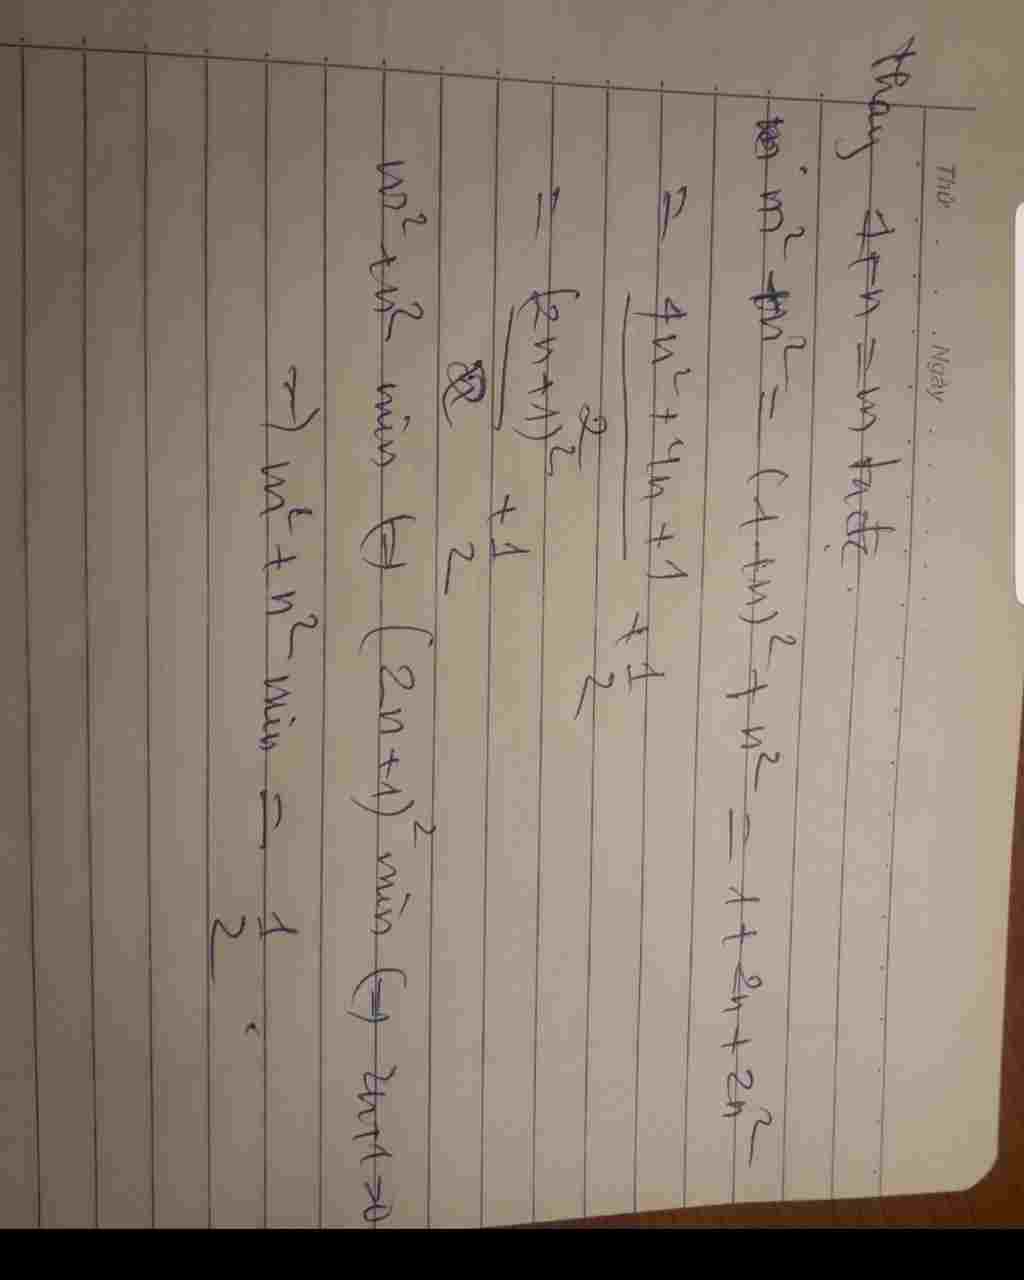 Thứ . . . . Ngày . . . . . . . .
thay 1+n = m ta đc.
m² + n² = (1+n)² + n² = 1 + 2n + 2n²
= (4n² + 4n + 1)/2 + 1/2
= (2n+1)²/2 + 1/2
m² + n² min (=) (2n+1)² min (=) 2n+1 = 0
→ m² + n² min = 1/2.